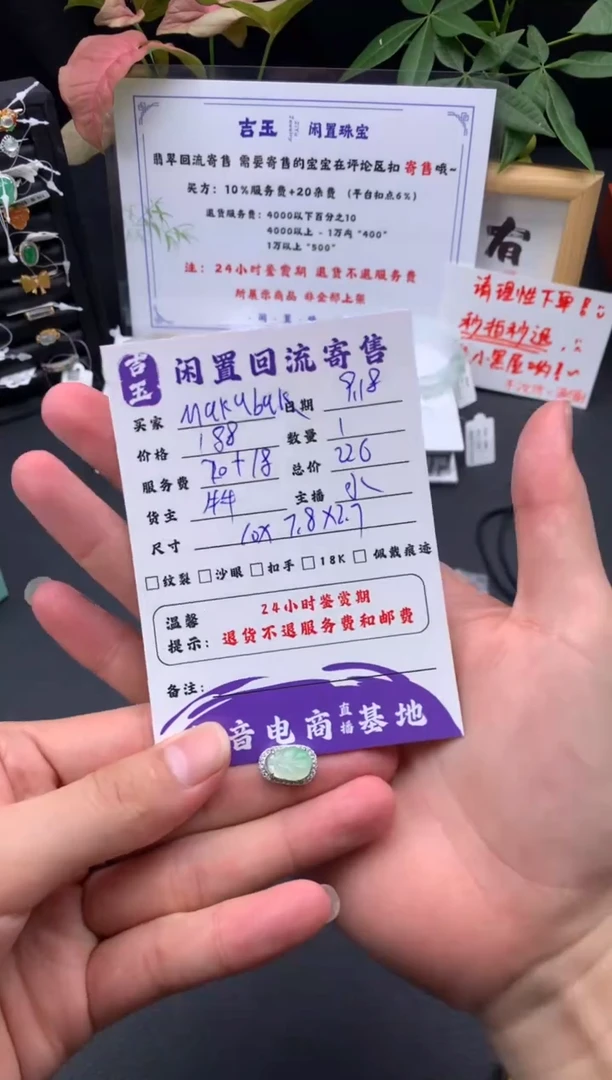 吉玉 闲置珠宝
翡翠回流寄售 需要寄售的宝宝在评论区扣 寄售哦~
买方：10%服务费+20杂费 （平台扣点6%）
退货服务费：4000以下百分之10
4000以上 - 1万内 "400"
1万以上 "500"
注：24小时鉴赏期 退货不退服务费
所展示商品 非全部上架
有
请理性下单！
秒拍秒退
小黑屋哟！
吉玉 闲置回流寄售
买家 日期 9.18
价格 188 数量 1
服务费 20+18 总价 226
货主 44 主播 小
尺寸 10x 7.8 x2.7
□纹裂 □沙眼 □扣手 □18K □佩戴痕迹
温馨提示： 24小时鉴赏期
退货不退服务费和邮费
备注：
音电商直播基地